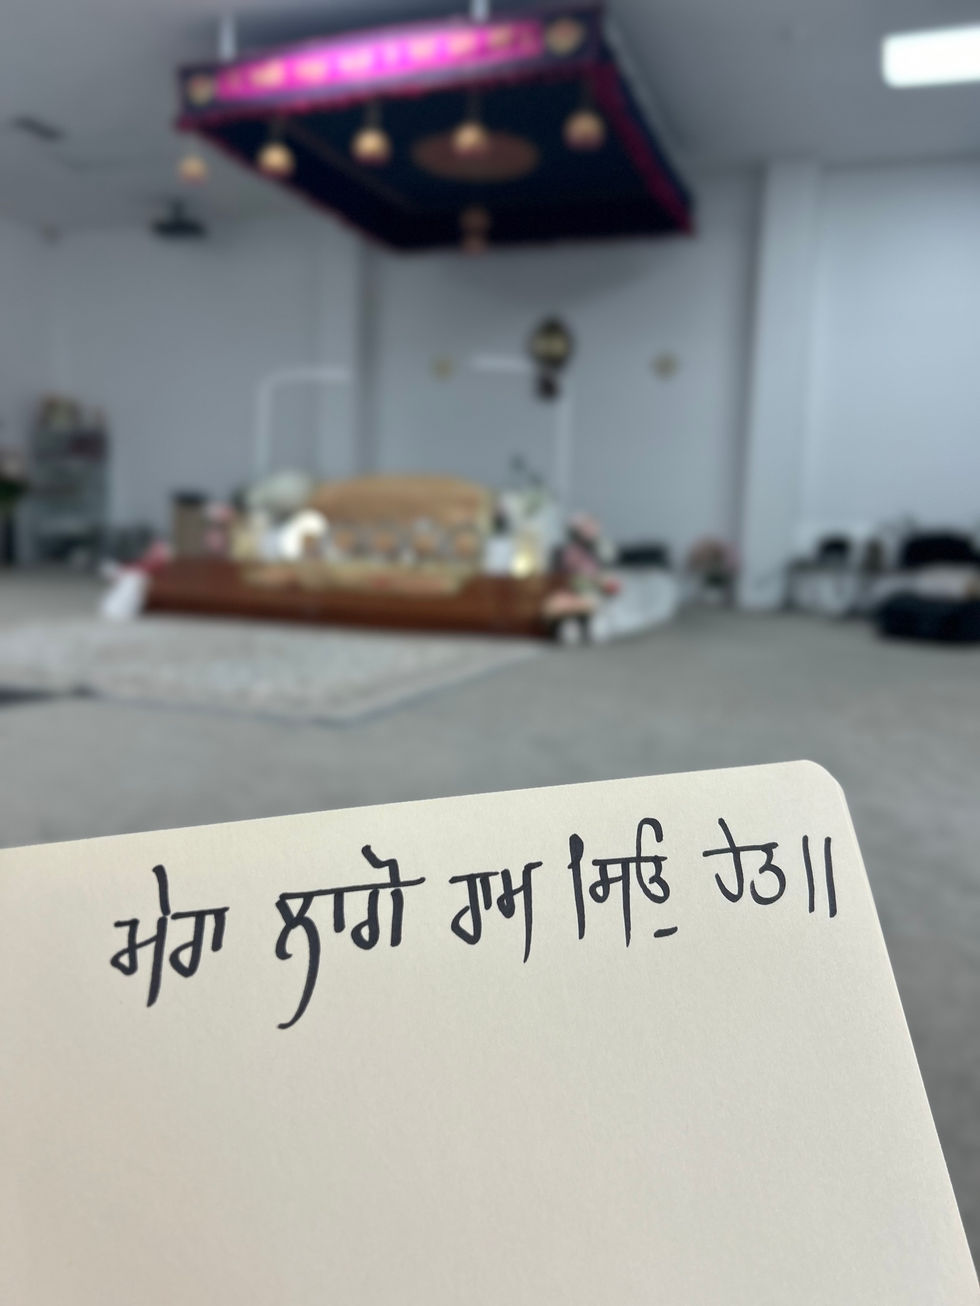 ਮੇਰਾ ਲਾਗੋ ਰਾਮ ਸਿਉ ਹੇਤੁ॥